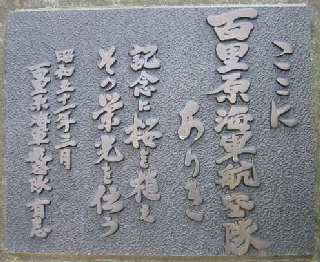 ここに
百里原海軍航空隊
ありき
記念に桜を植え
その栄光を伝う
昭和五十一年二月
百里原海軍航空隊有志